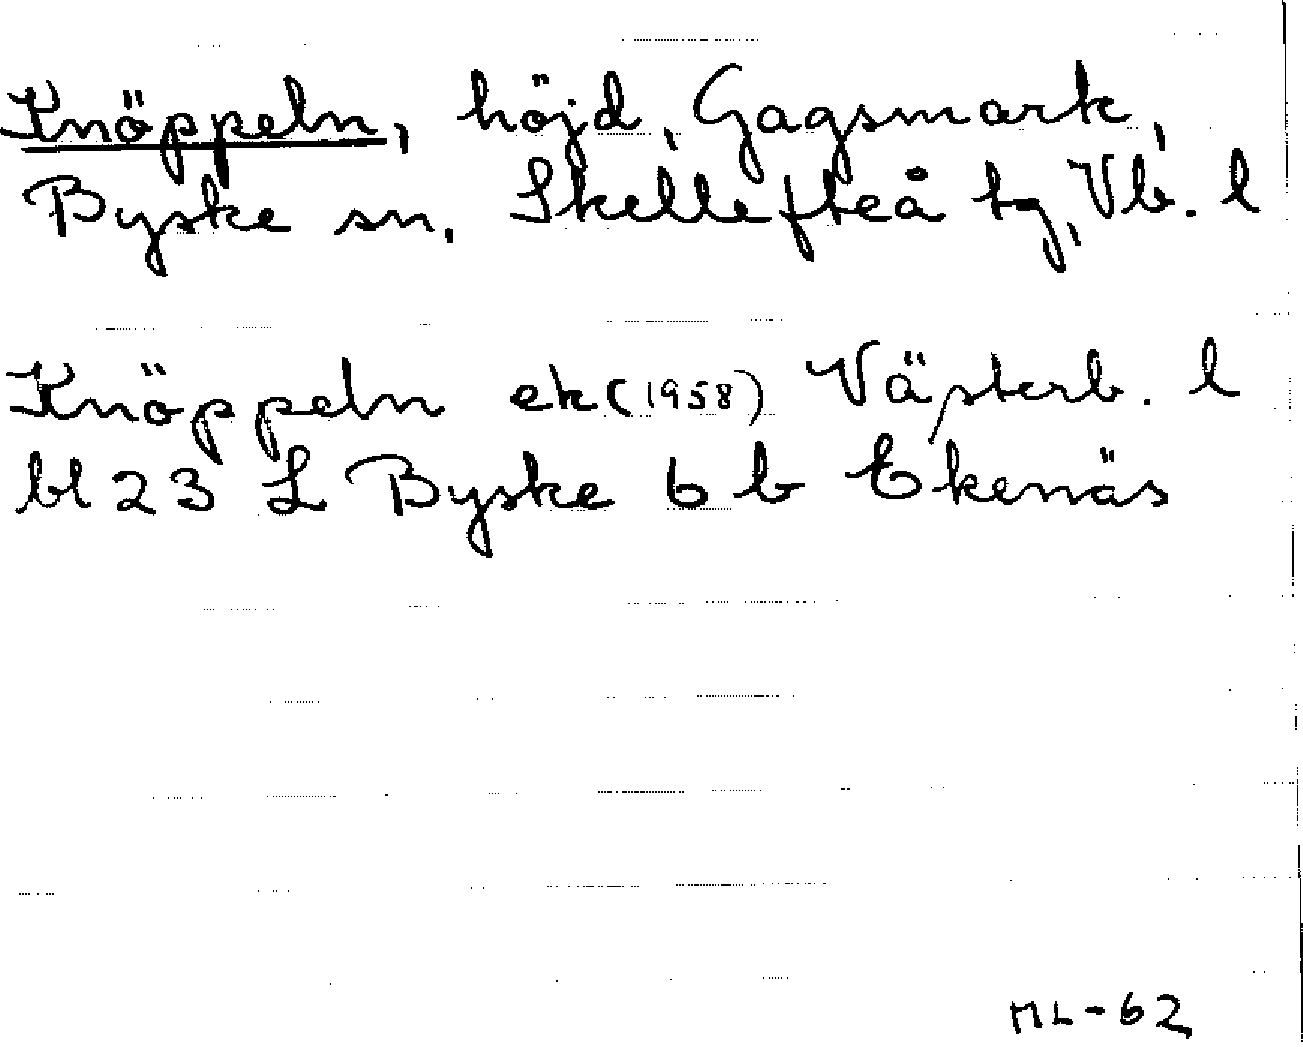 Knöppeln, höjd, Gagsmark,
Byske sn, Skellefteå tg, Vb. l
Knöppeln ek (1958) Västerb. l
bl 23 L Byske 6 b Ekenäs
ML-62